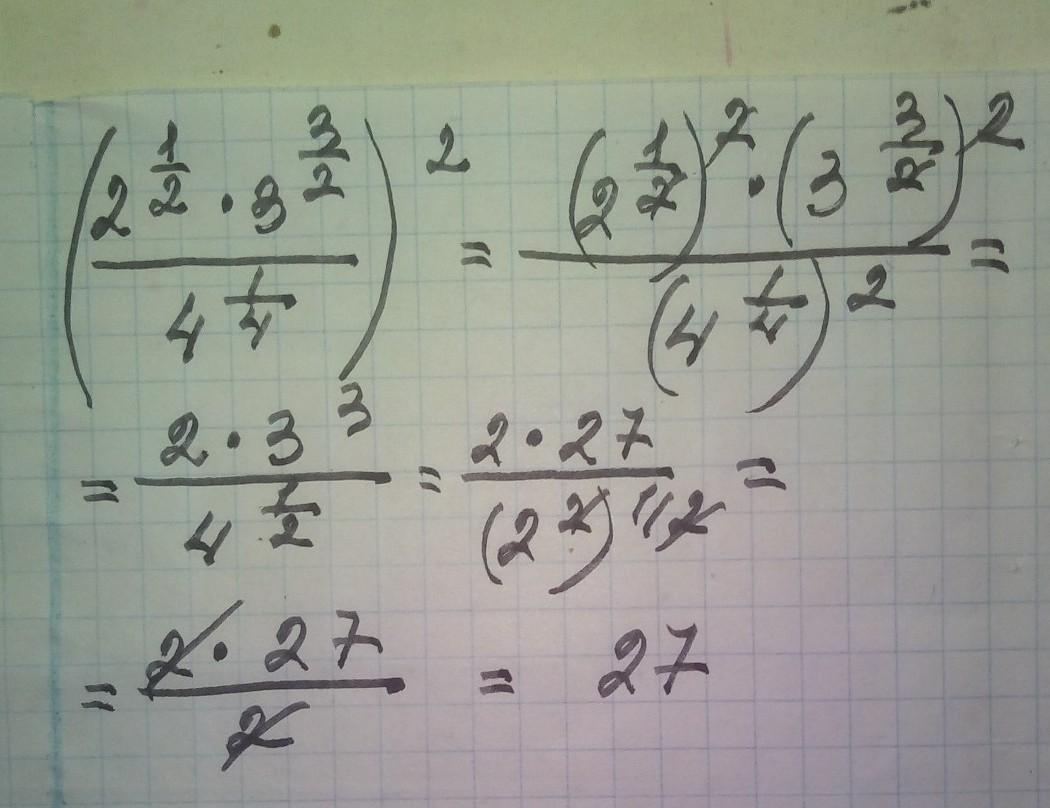 (2^(1/2) · 3^(3/2) / 4^(1/4))^2 = (2^(1/2))^2 · (3^(3/2))^2 / (4^(1/4))^2 =
= 2 · 3^3 / 4^(1/2) = 2 · 27 / (2^2)^(1/2) =
= 2 · 27 / 2 = 27